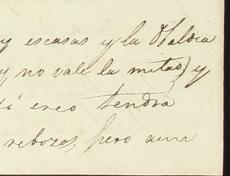 y escasas y la Maldia
y no vale la mitad) y
si creo tendrá
rebozos, pero aun